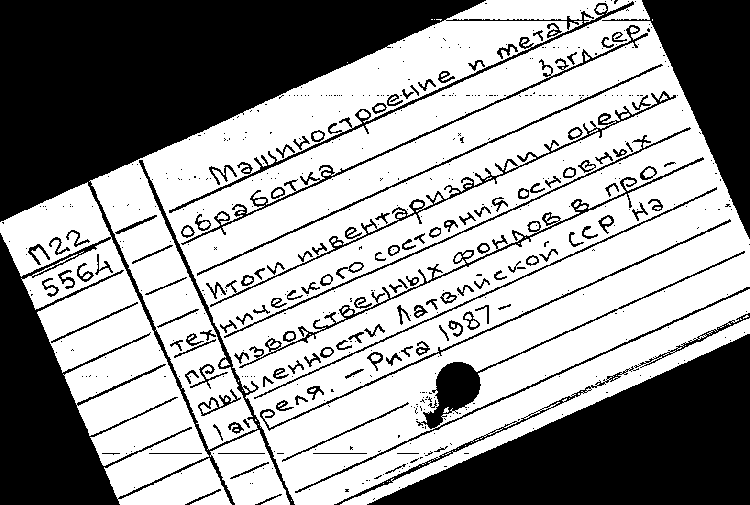 Машиностроение и металло-
обработка. Загл. сер.
П22
5564
Итоги инвентаризации и оценки
технического состояния основных
производственных фондов в про-
мышленности Латвийской ССР на
1 апреля. — Рига, 1987 —